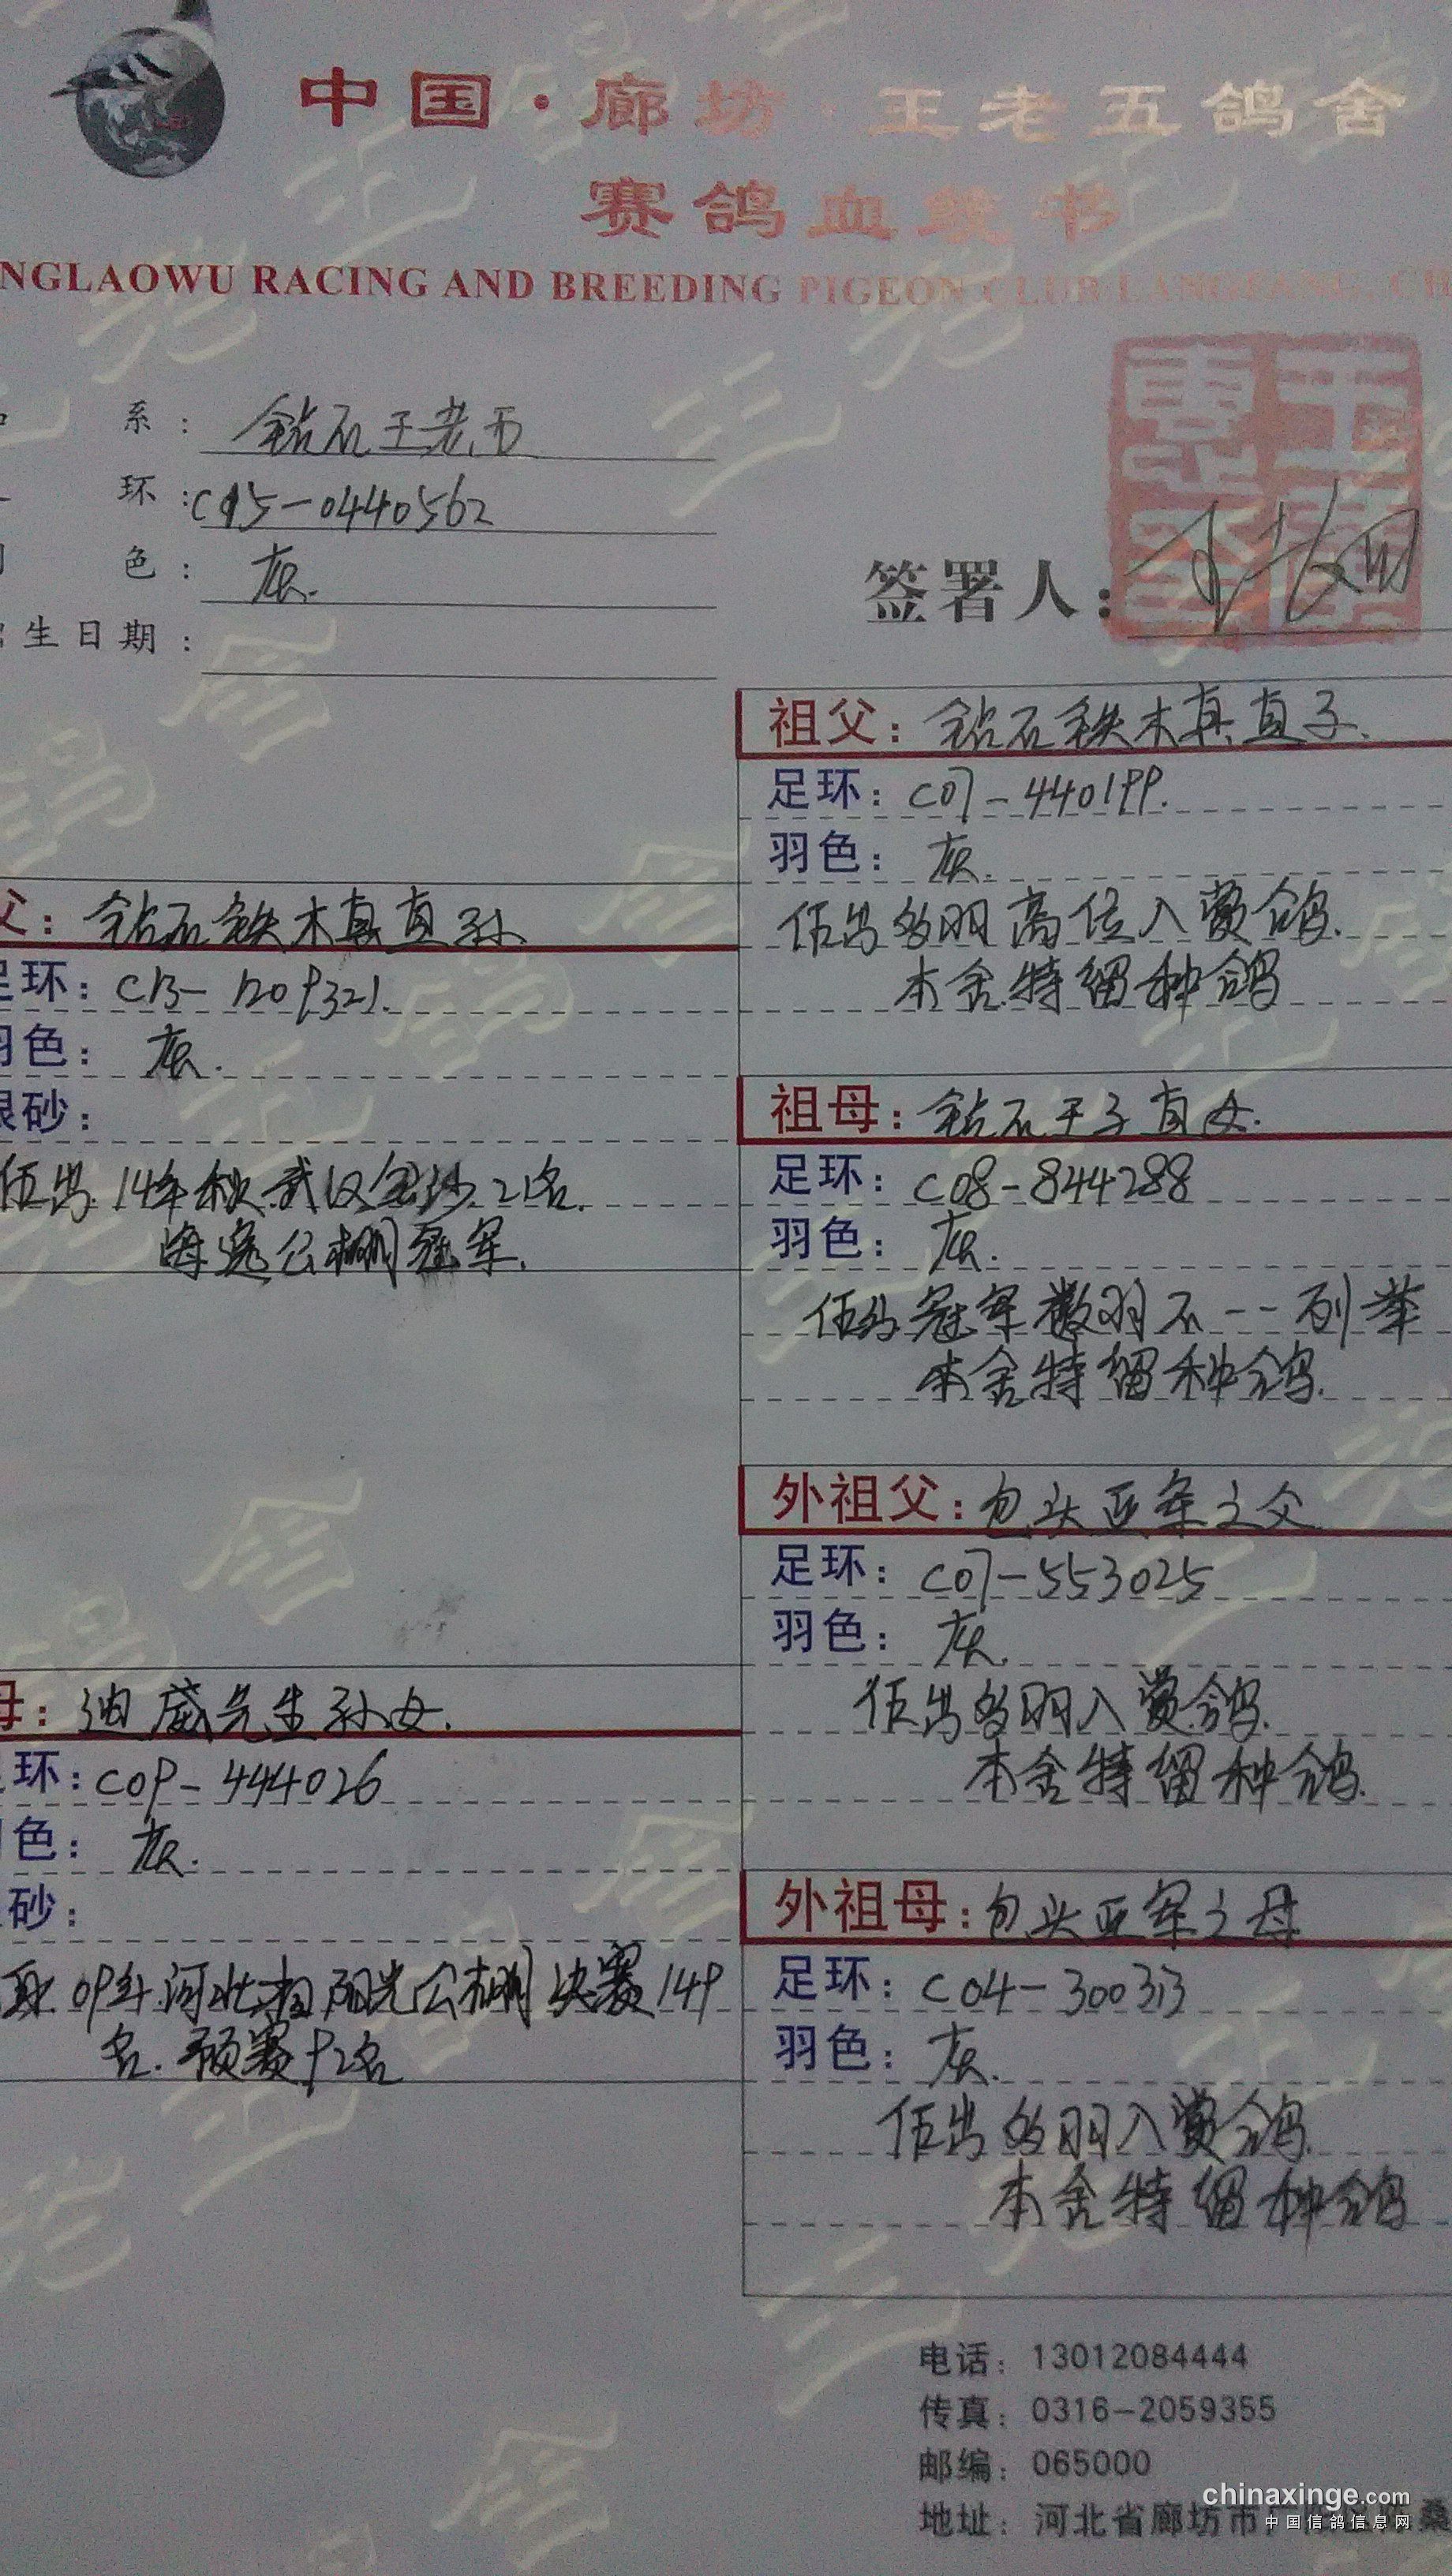 中国·廊坊·王老五鸽舍
赛鸽血统书
NGLAOWU RACING AND BREEDING PIGEON CLUB LANGFANG, CH
系：钻石王老五
环：C15-0440562
色：灰.
生日期：
签署人：
父：钻石铁木真直孙
足环：C13-1209321.
羽色：灰.
眼砂：
作出14年秋武汉金沙21名.
海逸公棚冠军.
母：迪威先生孙女.
环：C09-444026
色：灰.
砂：
取09年河北翔阳光公棚决赛149
名.预赛92名
祖父：钻石铁木真直子.
足环：C07-440199.
羽色：灰.
作出多羽高位入赏鸽.
本舍特留种鸽
祖母：钻石王子直女.
足环：C08-844288
羽色：灰.
作出冠军数羽不一一列举
本舍特留种鸽.
外祖父：包头亚军之父
足环：C07-553025
羽色：灰.
作出多羽入赏鸽.
本舍特留种鸽.
外祖母：包头亚军之母
足环：C04-300313
羽色：灰.
作出多羽入赏鸽.
本舍特留种鸽
电话：13012084444
传真：0316-2059355
邮编：065000
地址：河北省廊坊市
chinaxinge.com
中国信鸽信息网